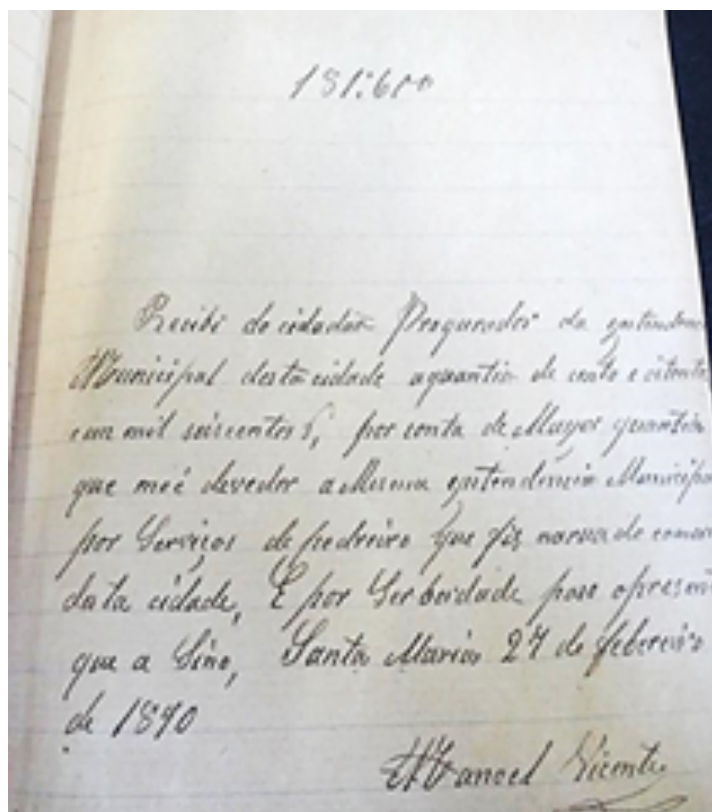 181:600
Recibi do cidadão Procurador da entendenc
Municipal desta cidade aquantia de cento e oitenta
e un mil seiscentos, por conta de Mayor quantia
que me é devedor a Mesma entendencia Municipa
por Serviços de pedreiro que fis narua do comer
desta cidade, E por Ser berdade paso opresen
que a Sino, Santa Maria 27 de febereiro
de 1890
Manoel Vicente